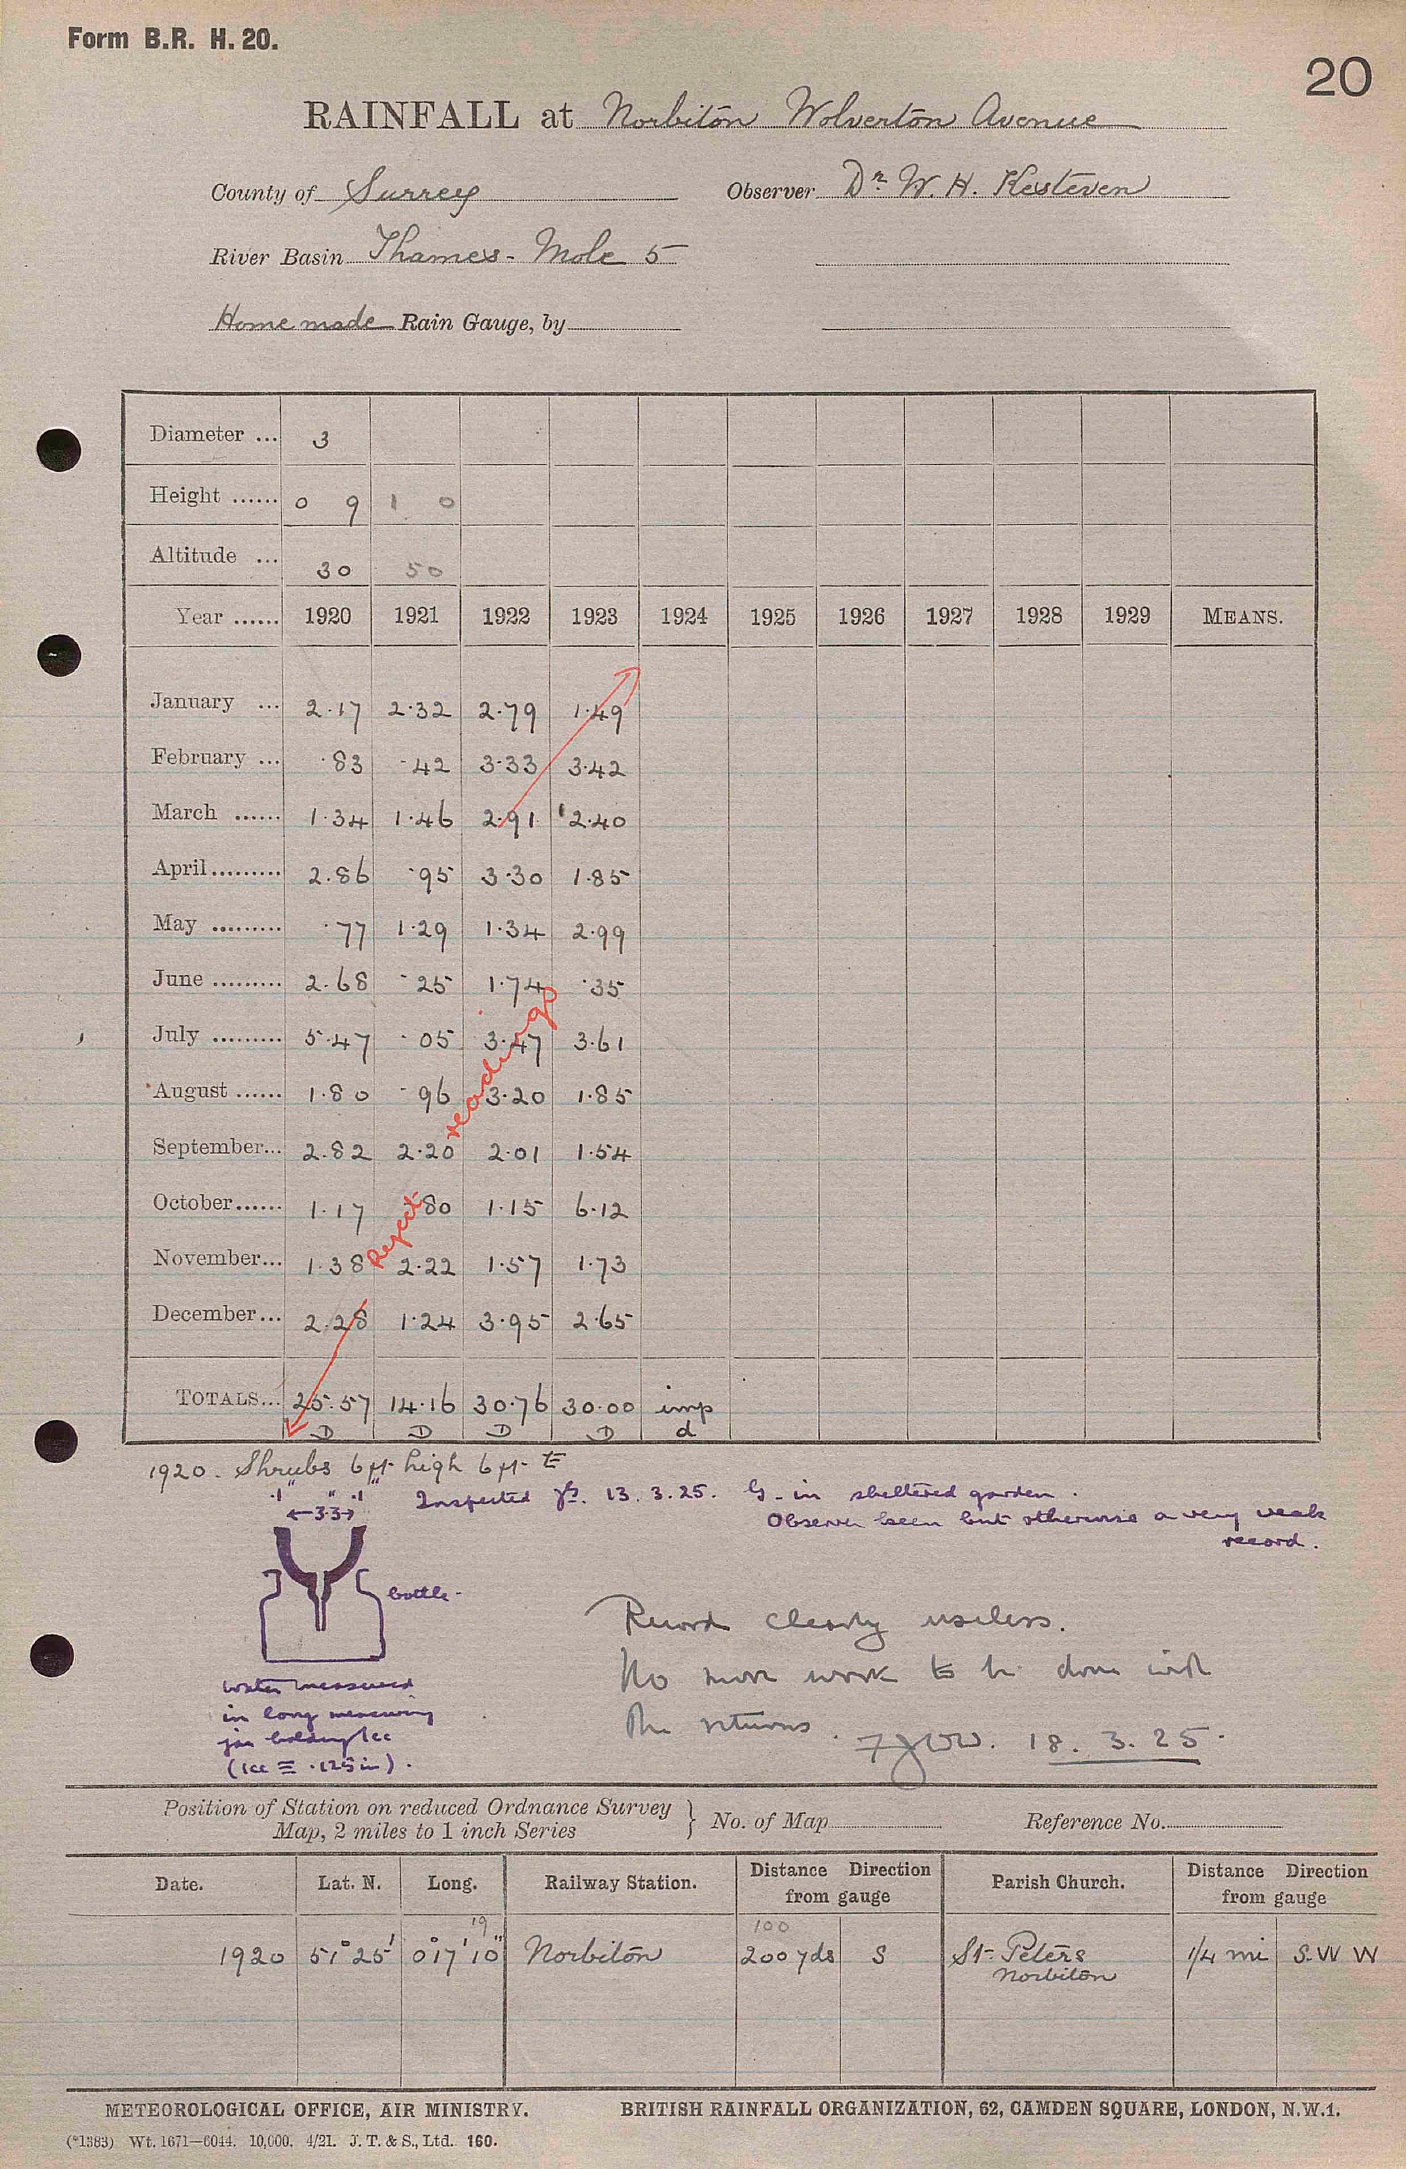 Form B.R. H. 20.
20
RAINFALL at Norbiton Wolverton Avenue
County of Surrey Observer Dr. W. H. Kesteven
River Basin Thames - Mole 5
Home made Rain Gauge, by
Diameter ... 3
Height ...... 0 9 1 0
Altitude ... 30 50
Year ...... 1920 1921 1922 1923 1924 1925 1926 1927 1928 1929 MEANS.
January ... 2.17 2.32 2.79 1.49
February ... .83 .42 3.33 3.42
March ...... 1.34 1.46 2.91 2.40
April ......... 2.86 .95 3.30 1.85
May ......... .77 1.29 1.34 2.99
June ......... 2.68 .25 1.74 .35
July ......... 5.47 .05 3.47 3.61
August ...... 1.80 .96 3.20 1.85
September... 2.82 2.20 2.01 1.54
October...... 1.17 .80 1.15 6.12
November... 1.38 2.22 1.57 1.73
December... 2.28 1.24 3.95 2.65
Reject readings
TOTALS... 25.57 14.16 30.76 30.00 imp
D D D D d
1920. Shrubs 6 ft. high 6 ft. E
.1" " .1"
←3.3→
Inspected 13.3.25. G. in sheltered garden.
Observer keen but otherwise a very weak
record.
bottle.
water measured
in long measuring
jar holding 1cc
(1cc ≡ .125 in).
Record clearly useless.
No more work to be done with
the returns.
18.3.25.
Position of Station on reduced Ordnance Survey
Map, 2 miles to 1 inch Series } No. of Map Reference No.
Date. Lat. N. Long. Railway Station. Distance Direction from gauge Parish Church. Distance Direction from gauge
19 100
1920 51° 25' 0° 17' 10" Norbiton 200 yds S St. Peters 1/4 mi S.W W
Norbiton
METEOROLOGICAL OFFICE, AIR MINISTRY. BRITISH RAINFALL ORGANIZATION, 62, CAMDEN SQUARE, LONDON, N.W.1.
(*1383) Wt. 1671—6044. 10,000. 4/21. J. T. & S., Ltd. 160.